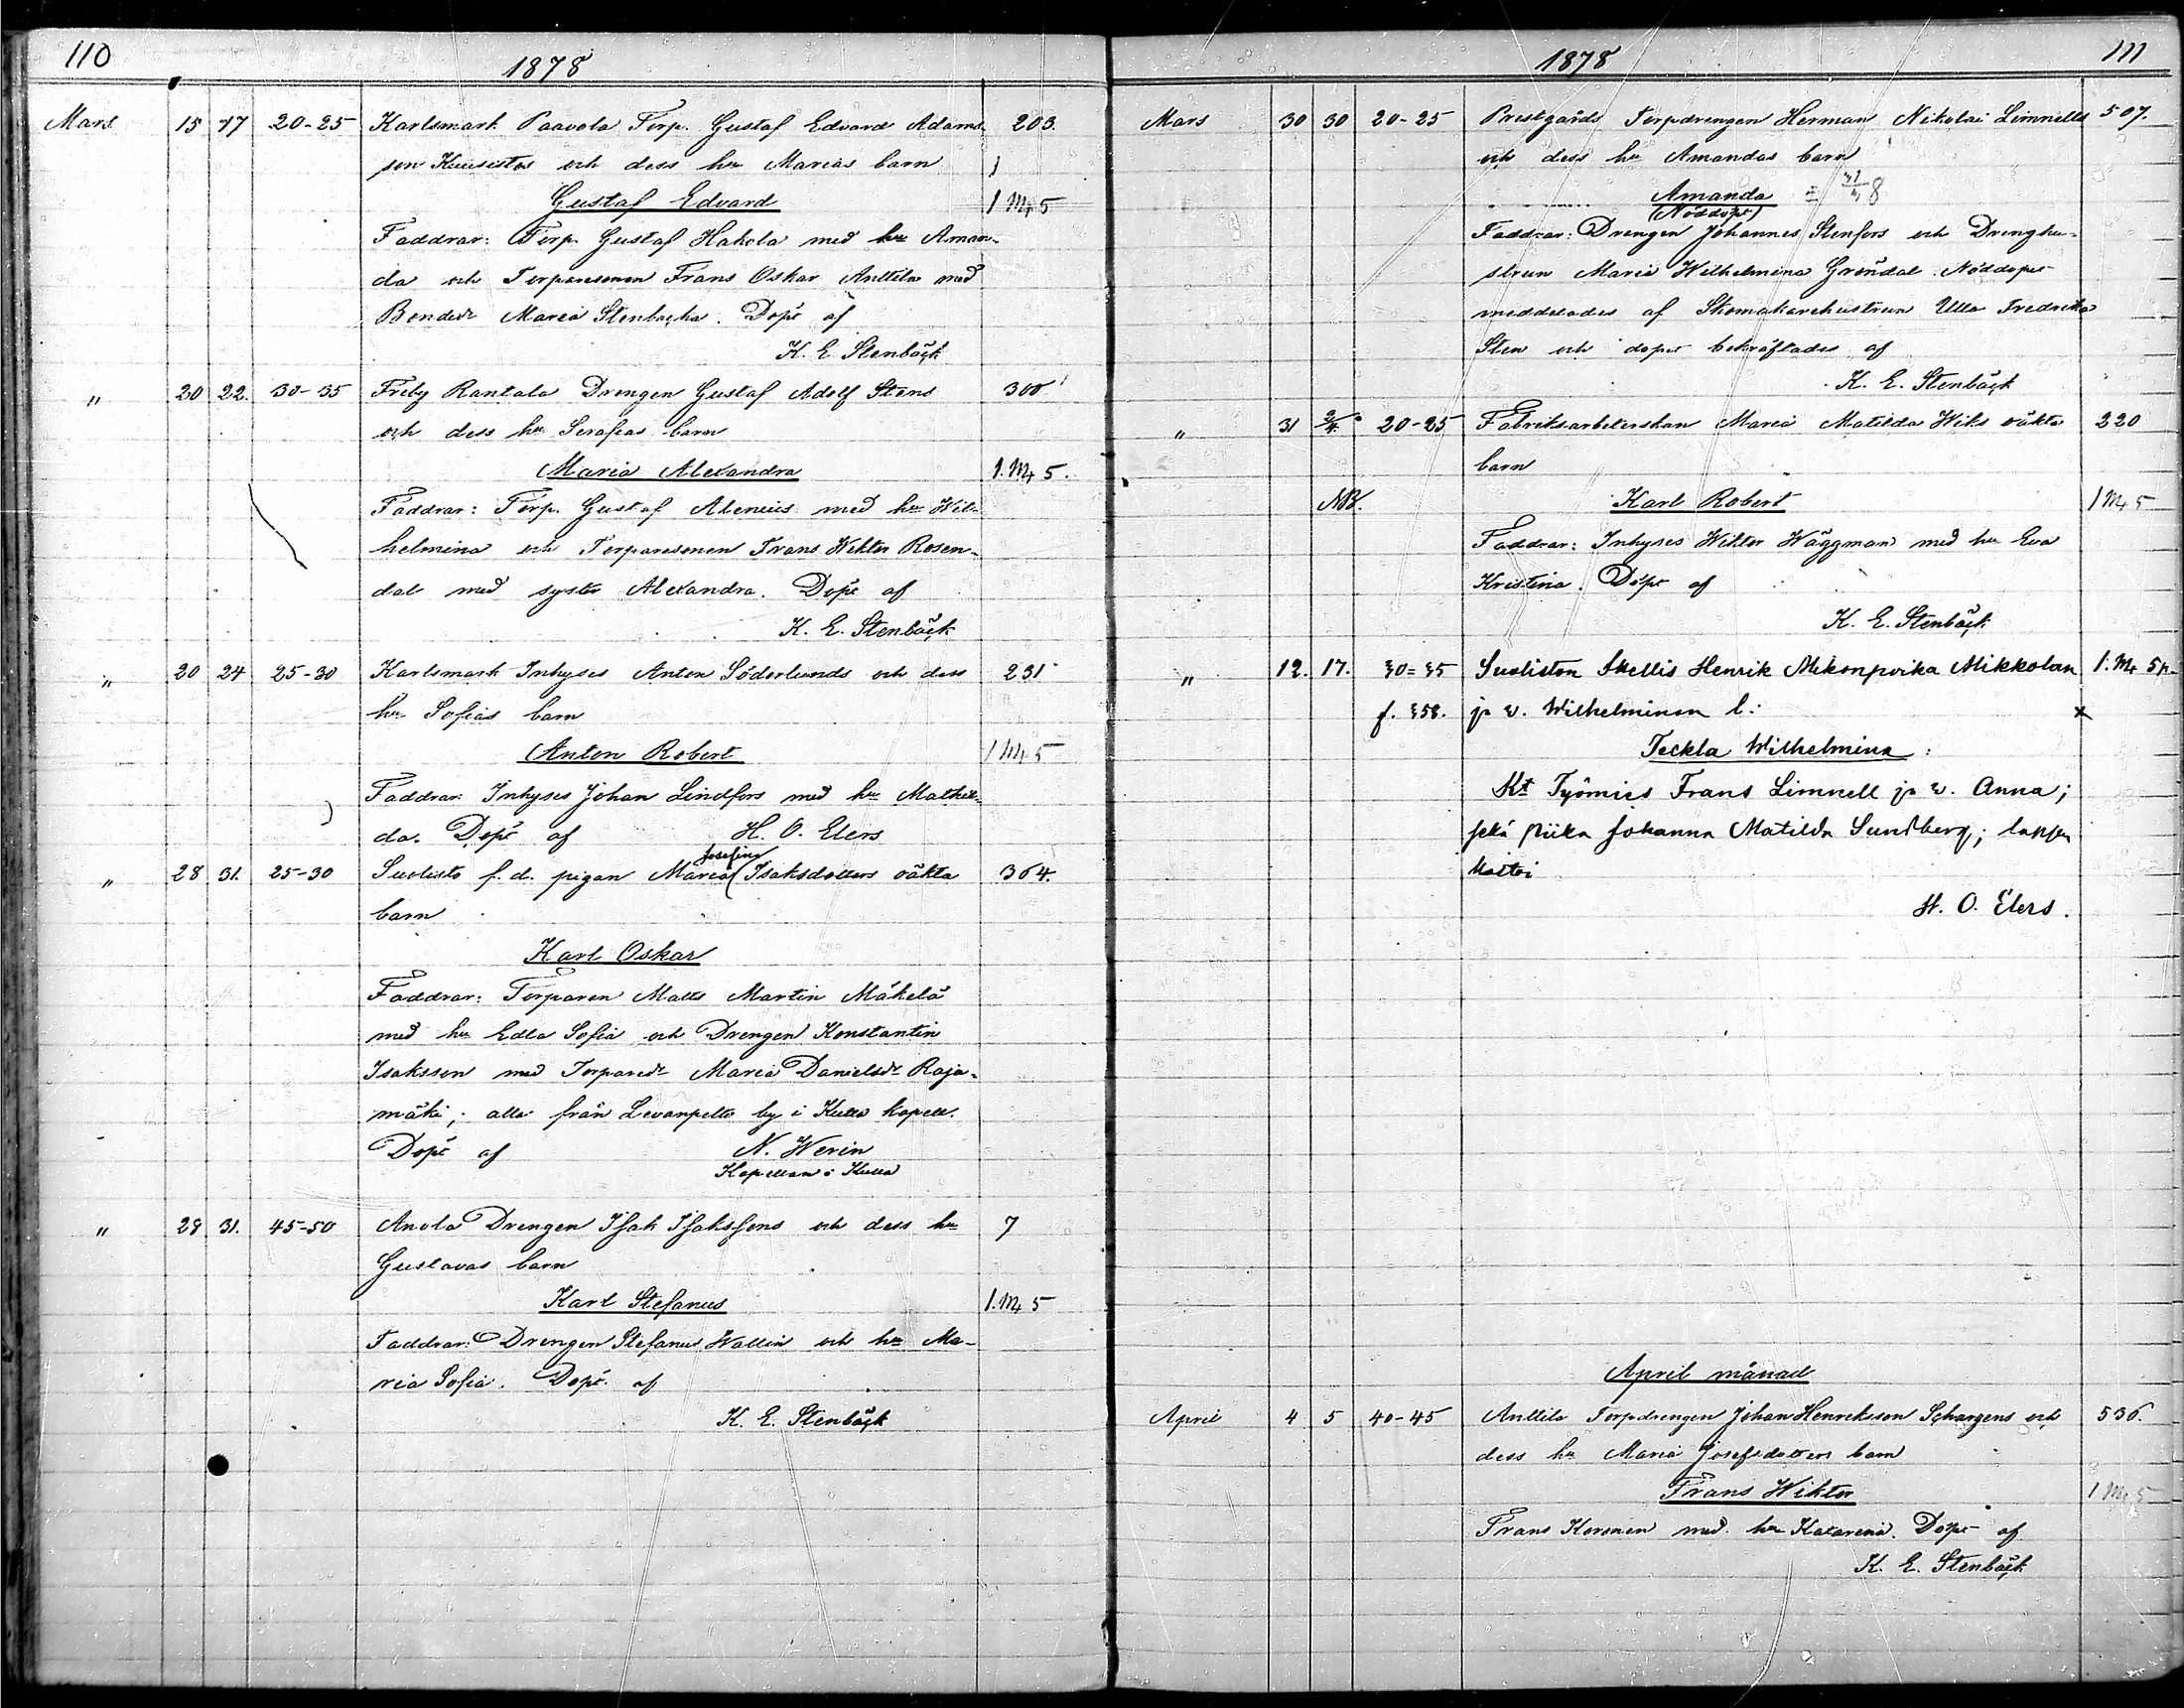 110
1878
Mars 15 17 20-25 Karlsmark Paavola Torp. Gustaf Edvard Adams- 203.
son Kuusistos och dess hu Marias barn
Gustaf Edvard 1 M 5
Faddrar: Torp. Gustaf Hakola med hu Aman-
da och Torparesonen Frans Oskar Anttila med
Bondedr Maria Stenbacka. Döpt af
K. E. Stenbäck
" 20 22. 30-35 Friby Rantala Drengen Gustaf Adolf Stens 300
och dess hu Serafias barn
Maria Alexandra 1. M 5.
Faddrar: Torp. Gustaf Alenius med hu Wil-
helmina och Torparesonen Frans Wiktor Rosen-
dal med syster Alexandra. Döpt af
K. E. Stenbäck
" 20 24 25-30 Karlsmark Inhyses Anton Söderlunds och dess 231
hu Sofias barn
Anton Robert 1 M 5
Faddrar: Inhyses Johan Lindfors med hu Mathil-
da. Döpt af H. O. Elers
" 28 31. 25-30 Suolisto f. d. pigan Maria (Josefina Isaksdotters oäkta 364.
barn
Karl Oskar
Faddrar: Torparen Matts Martin Mäkelä
med hu Edla Sofia och Drengen Konstantin
Isaksson med Torparedr Maria Danielsdr Raja-
mäki; alla från Levanpelto by i Kulla kapell.
Döpt af N. Werin
Kapellan i Kulla
" 29 31. 45-50 Anola Drengen Isak Isakssons och dess hu 7
Gustavas barn
Karl Stefanus 1. M 5
Faddrar: Drengen Stefanus Wallin och hu Ma-
ria Sofia. Döpt af
K. E. Stenbäck
1878
111
Mars 30 30 20-25 Prestgårds Torpdrengen Herman Nikolai Limnells 507.
och dess hu Amandas barn
Amanda
(Nöddöpt)
Faddrar: Drengen Johannes Stenfors och Drenghu-
strun Maria Wilhelmina Gröndal. Nöddopet
meddelades af Skomakarehustrun Ulla Fredrika
Sten och dopet bekräftades af
K. E. Stenbäck
" 31 2/4. 20-25 Fabriksarbeterskan Maria Matilda Wiks oäkta 220
barn
NB. Karl Robert 1 M 5
Faddrar: Inhyses Wiktor Wäggman med hu Eva
Kristina. Döpt af
K. E. Stenbäck
" 12. 17. 30=35 Suoliston Skellis Henrik Mikonpoika Mikkolan 1. M 5 p.
f. 358. ja v. Wilhelminan l: x
Teckla Wilhelmina:
Kt Työmies Frans Limnell ja v. Anna;
sekä piika Johanna Matilda Sundberg; lapsen
kastoi
H. O. Elers.
April månad
April 4 5 40-45 Anttila Torpdrengen Johan Henriksson Schargens och 536.
dess hu Maria Josefsdotters barn
Frans Wiktor 1 M 5
Frans Koronen med hu Katarina. Döpt af
K. E. Stenbäck